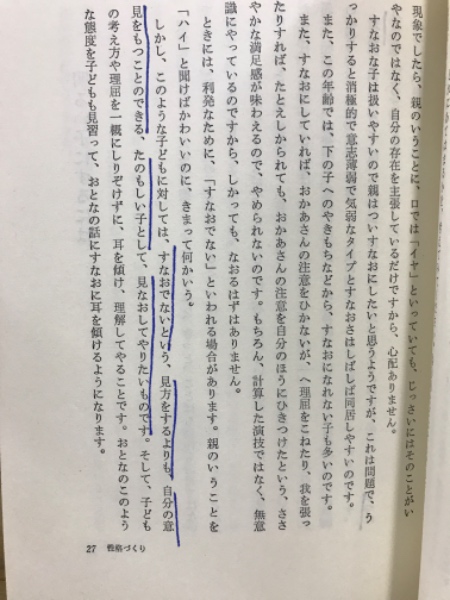 現象でしたら、親のいうことに、口では「イヤ」といっていても、じっさいにはそのことがい
やなのではなく、自分の存在を主張しているだけですから、心配ありません。
すなおな子は扱いやすいので親はついすなおにしたいと思うようですが、これは問題で、う
っかりすると消極的で意志薄弱で気弱なタイプとすなおさはしばしば同居しやすいのです。
また、この年齢では、下の子へのやきもちなどから、すなおになれない子も多いのです。
また、すなおにしていれば、おかあさんの注意をひかないが、へ理屈をこねたり、我を張っ
たりすれば、たとえしかられても、おかあさんの注意を自分のほうにひきつけたという、ささ
やかな満足感が味わえるので、やめられないのです。もちろん、計算した演技ではなく、無意
識にやっているのですから、しかっても、なおるはずはありません。
ときには、利発なために、「すなおでない」といわれる場合があります。親のいうことを
「ハイ」と聞けばかわいいのに、きまって何かいう。
しかし、このような子どもに対しては、すなおでないという、見方をするよりも、自分の意
見をもつことのできる、たのもしい子として、見なおしてやりたいものです。そして、子ども
の考え方や理屈を一概にしりぞけずに、耳を傾け、理解してやることです。おとなのこのよう
な態度を子どもも見習って、おとなの話にすなおに耳を傾けるようになります。
27 性格づくり